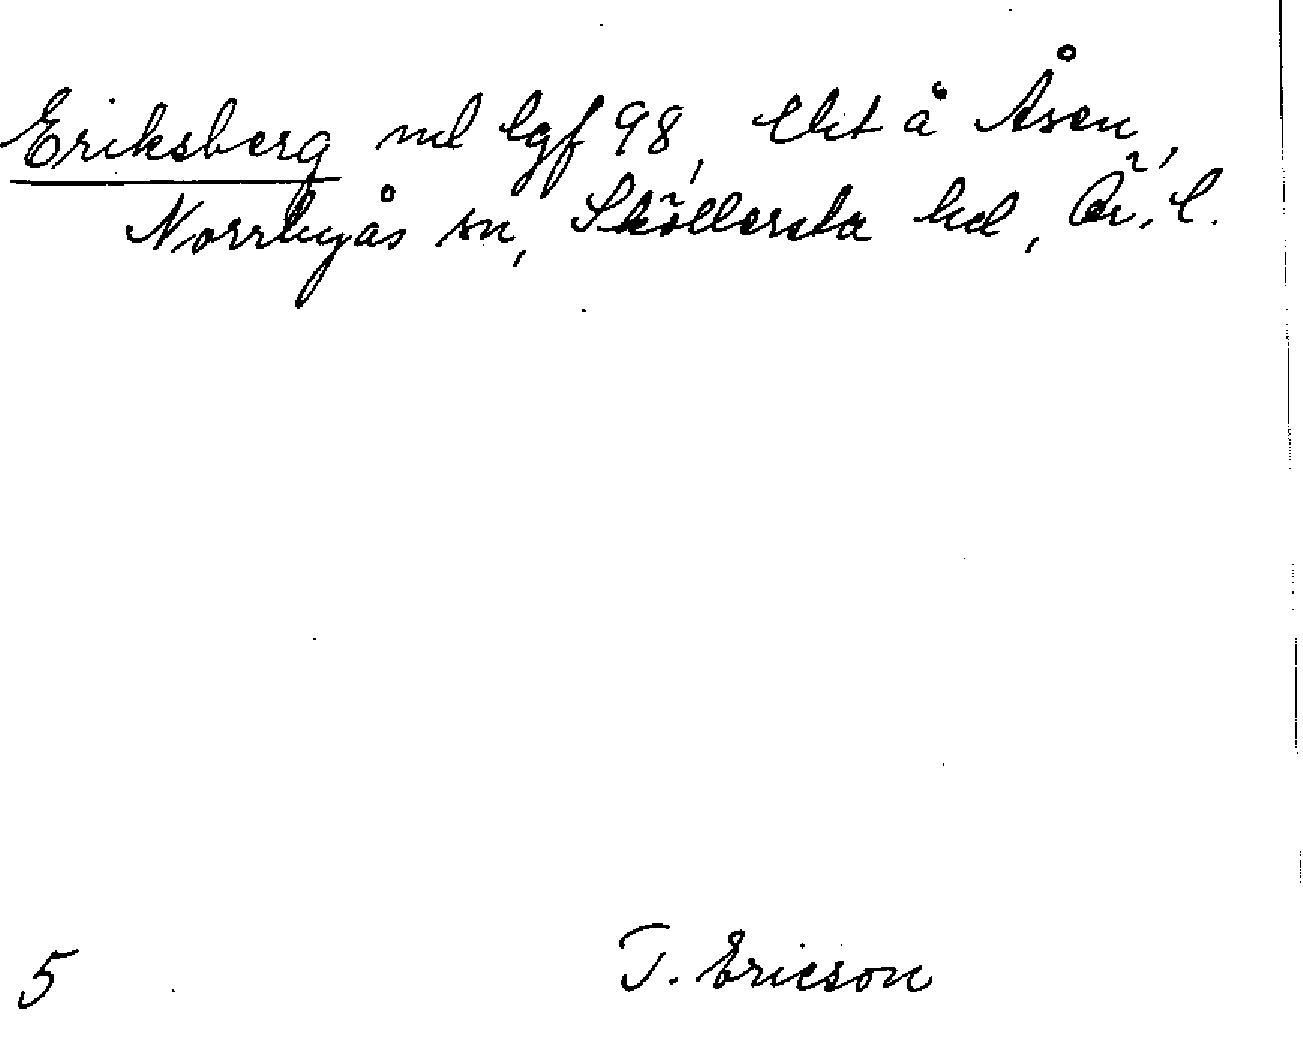 Eriksberg nd lgf 98, Ebl å Åsen,
Norrbyås sn, Sköllersta hd, Ör. l.
5 T. Ericson